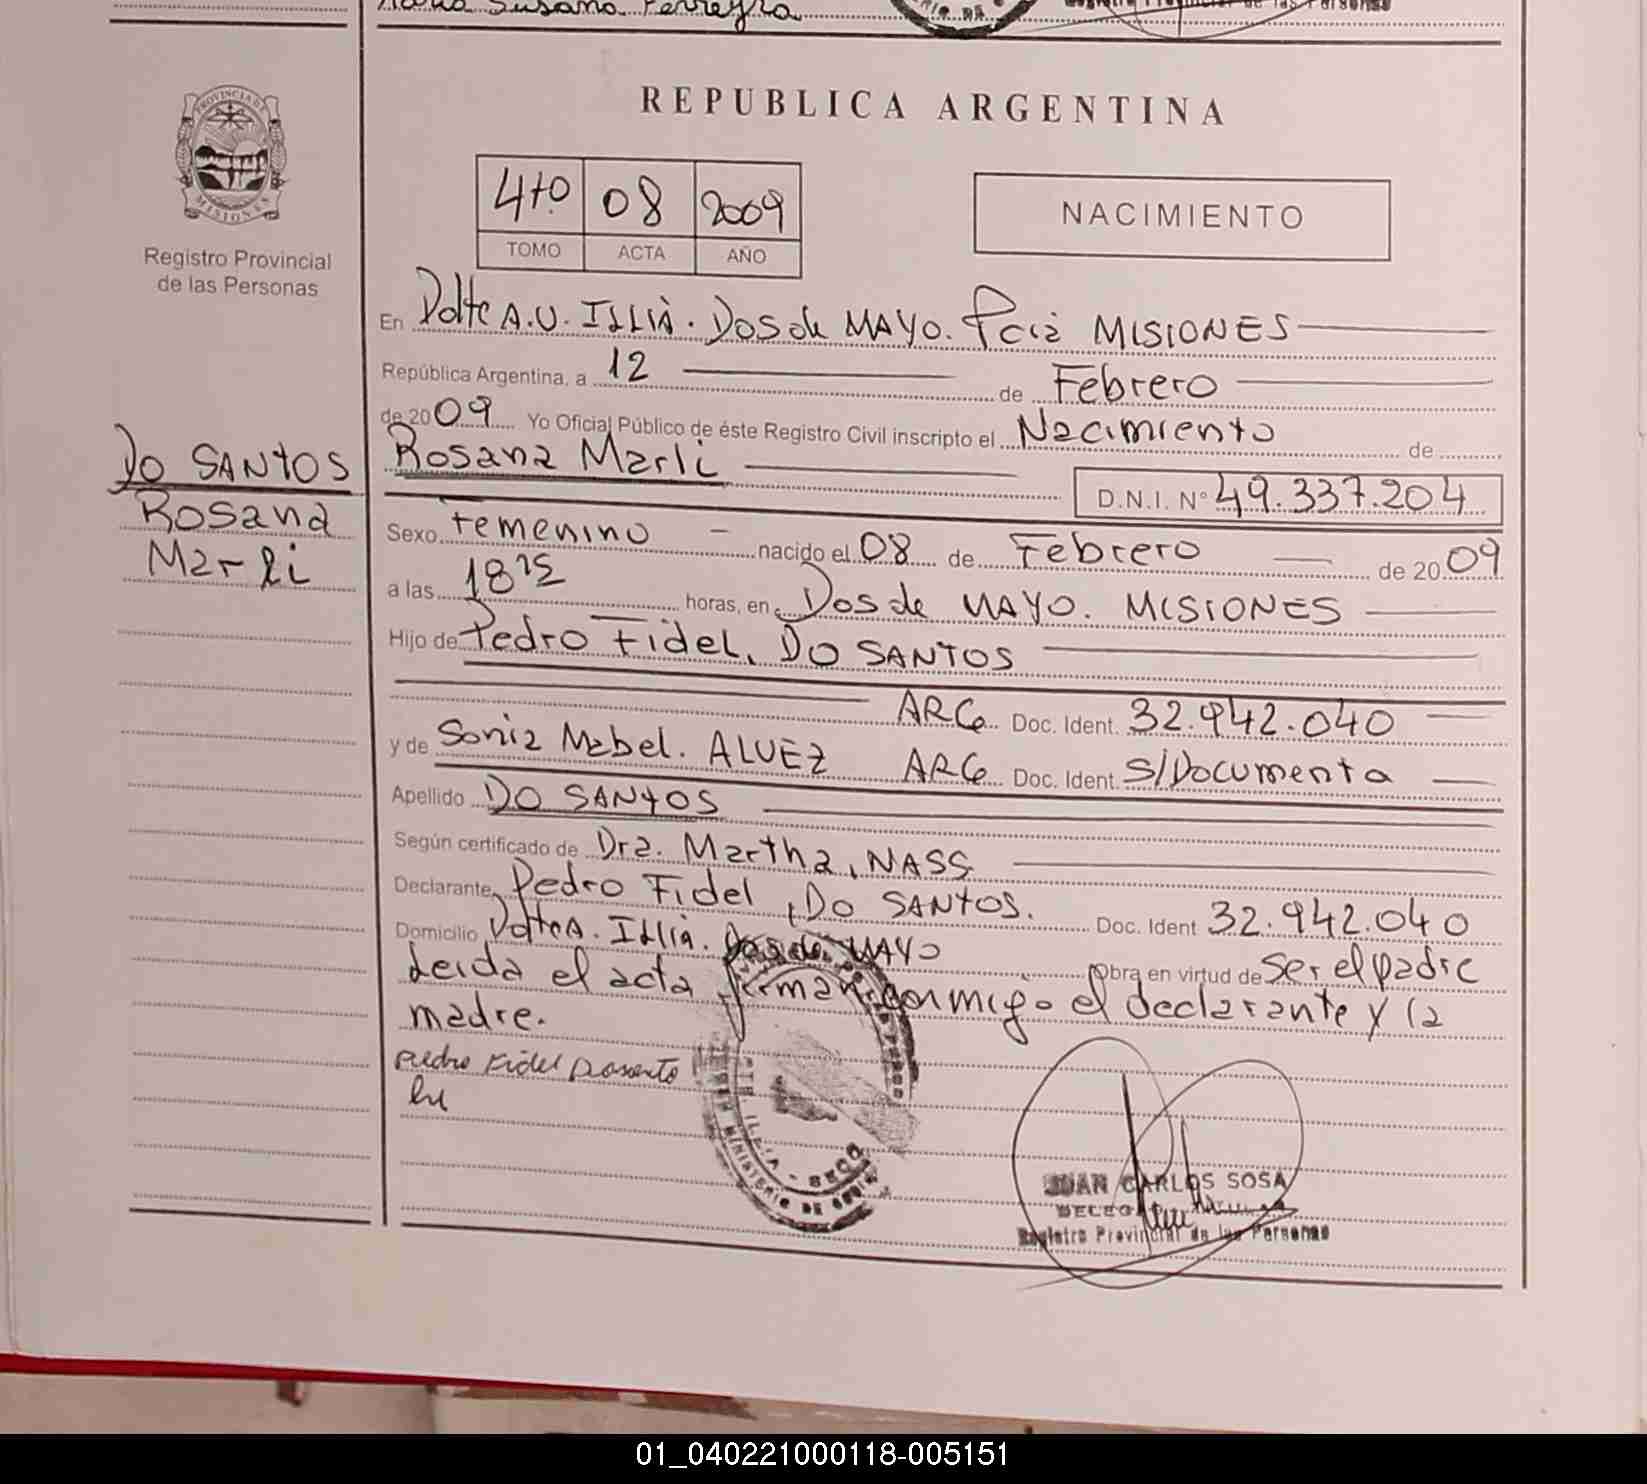 María Susana Ferreyra
REPUBLICA ARGENTINA
PROVINCIA DE
MISIONES
Registro Provincial
de las Personas
4to 08 2009
TOMO ACTA AÑO
NACIMIENTO
En Dpto A.U. ILLIA. Dos de MAYO. Pcia MISIONES
República Argentina, a 12 de Febrero
de 2009 Yo Oficial Público de éste Registro Civil inscripto el Nacimiento de
DO SANTOS
Rosana
Marli
Rosana Marli
D.N.I. N° 49.337.204
Sexo Femenino - nacido el 08 de Febrero de 2009
a las 18 15 horas, en Dos de MAYO. MISIONES
Hijo de Pedro Fidel, DO SANTOS
ARG Doc. Ident. 32.942.040
y de Sonia Mabel. ALVEZ ARG Doc. Ident. S/Documenta
Apellido DO SANTOS
Según certificado de Dra. Martha, NASS
Declarante Pedro Fidel, DO SANTOS. Doc. Ident 32.942.040
Domicilio Dpto A. Illia. Dos de MAYO Obra en virtud de ser el padre
Leida el acta firman conmigo el declarante y la
madre.
Pedro Fidel Dosanto
JUAN CARLOS SOSA
Registro Provincial de las Personas
01_040221000118-005151